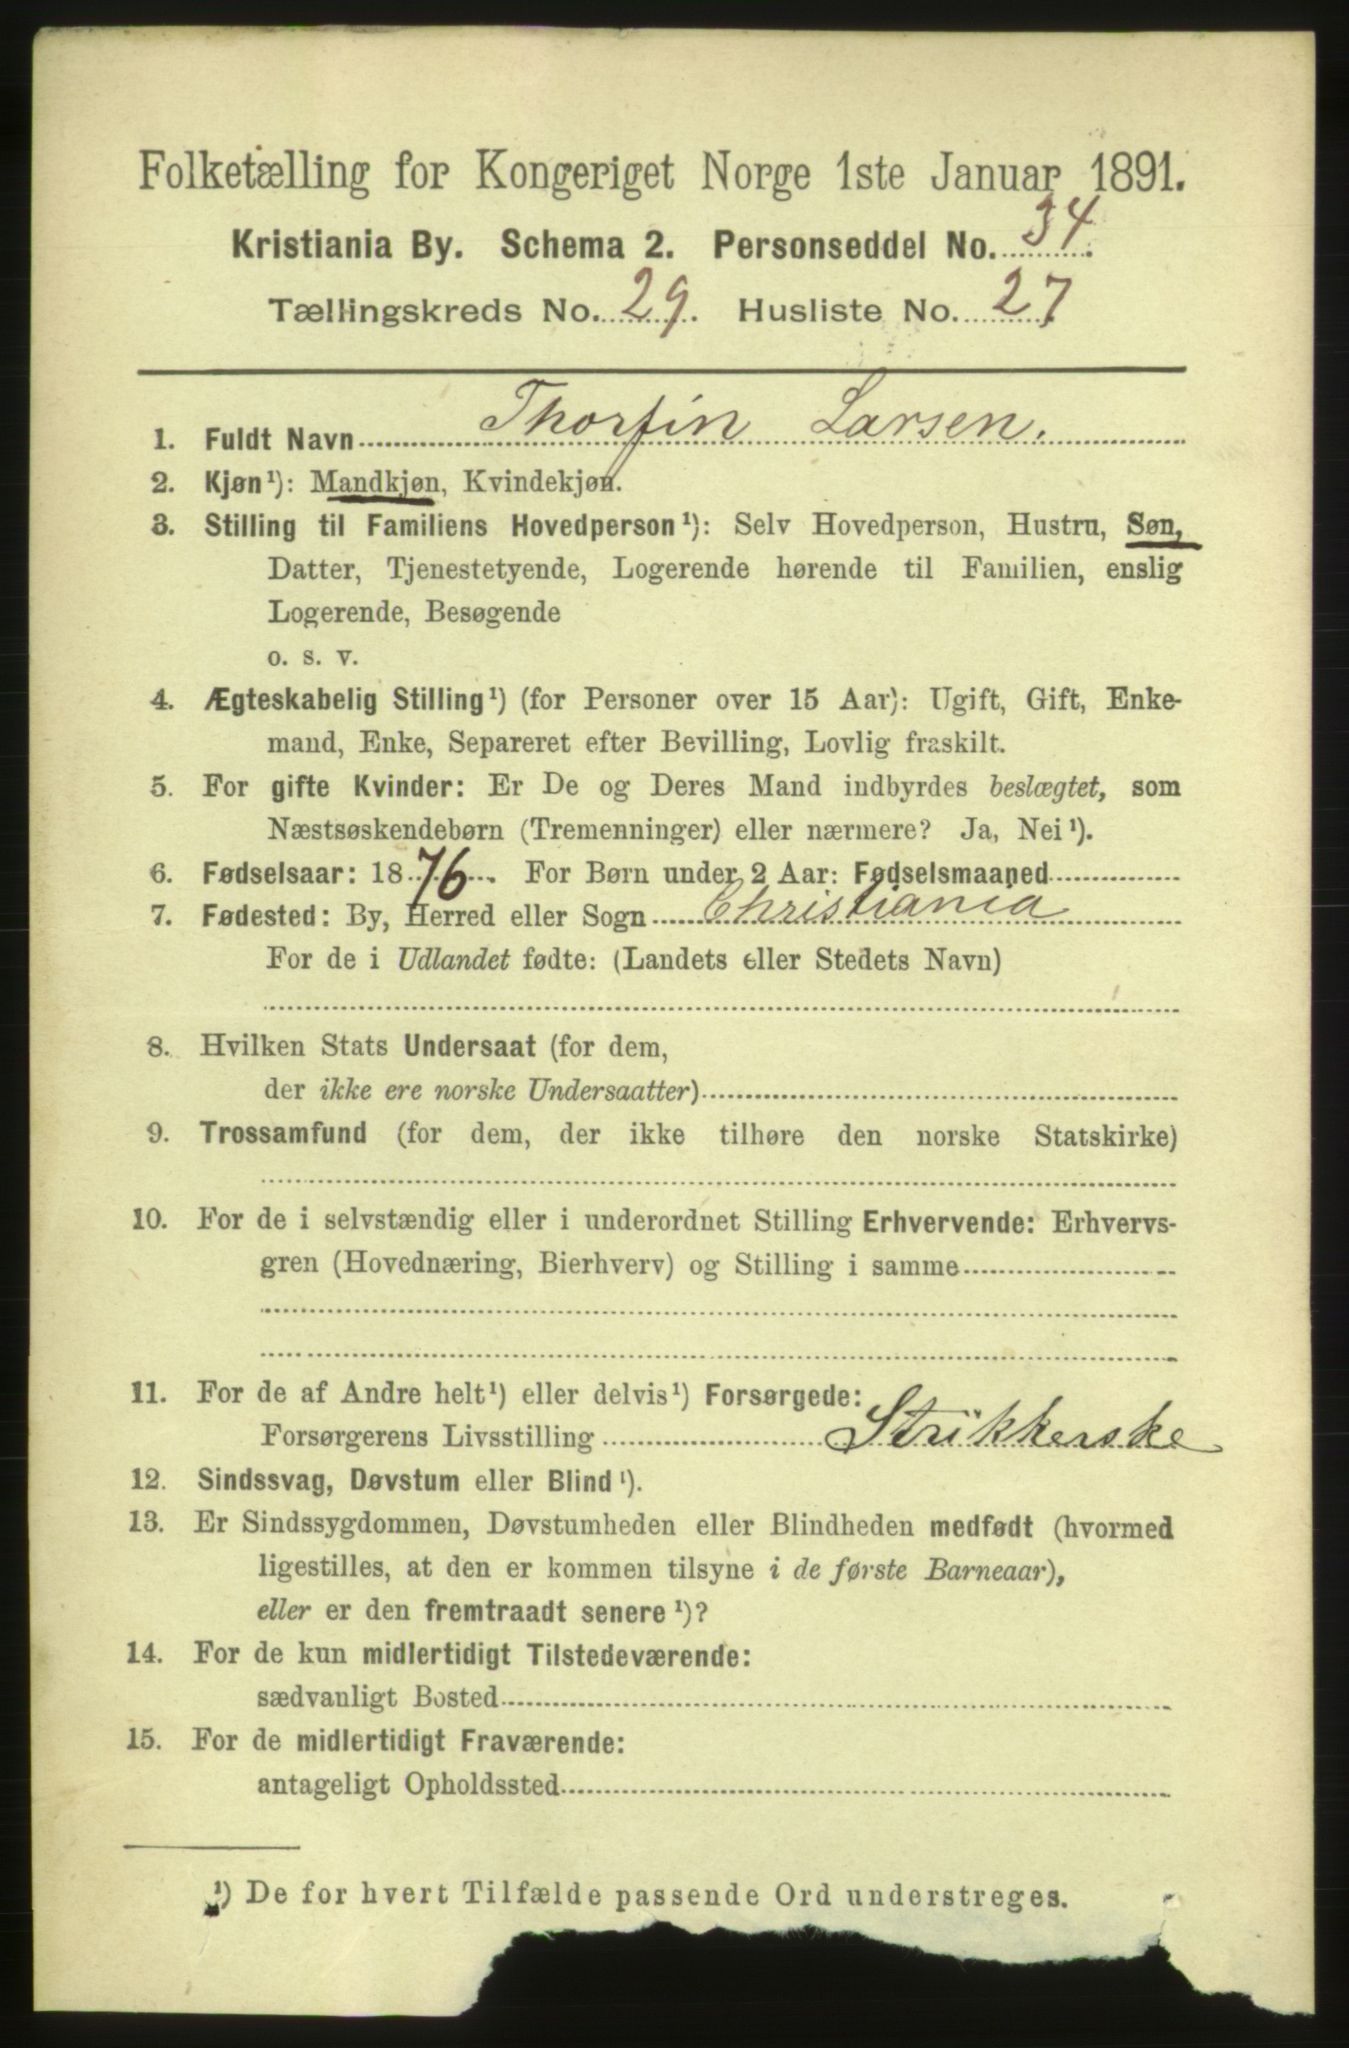 Folketælling for Kongeriget Norge 1ste Januar 1891.
Kristiania By. Schema 2. Personseddel No. 34.
Tællingskreds No. 29. Husliste No. 27
1. Fuldt Navn Thorfin Larsen.
2. Kjøn¹): Mandkjøn, Kvindekjøn.
3. Stilling til Familiens Hovedperson¹): Selv Hovedperson, Hustru, Søn,
Datter, Tjenestetyende, Logerende hørende til Familien, enslig
Logerende, Besøgende
o. s. v.
4. Ægteskabelig Stilling¹) (for Personer over 15 Aar): Ugift, Gift, Enke-
mand, Enke, Separeret efter Bevilling, Lovlig fraskilt.
5. For gifte Kvinder: Er De og Deres Mand indbyrdes beslægtet, som
Næstsøskendebørn (Tremenninger) eller nærmere? Ja, Nei¹).
6. Fødselsaar: 1876. For Børn under 2 Aar: Fødselsmaaned
7. Fødested: By, Herred eller Sogn Christiania
For de i Udlandet fødte: (Landets eller Stedets Navn)
8. Hvilken Stats Undersaat (for dem,
der ikke ere norske Undersaatter)
9. Trossamfund (for dem, der ikke tilhøre den norske Statskirke)
10. For de i selvstændig eller i underordnet Stilling Erhvervende: Erhvervs-
gren (Hovednæring, Bierhverv) og Stilling i samme
11. For de af Andre helt¹) eller delvis¹) Forsørgede:
Forsørgerens Livsstilling Strikkerske
12. Sindssvag, Døvstum eller Blind¹).
13. Er Sindssygdommen, Døvstumheden eller Blindheden medfødt (hvormed
ligestilles, at den er kommen tilsyne i de første Barneaar),
eller er den fremtraadt senere¹)?
14. For de kun midlertidigt Tilstedeværende:
sædvanligt Bosted
15. For de midlertidigt Fraværende:
antageligt Opholdssted
¹) De for hvert Tilfælde passende Ord understreges.